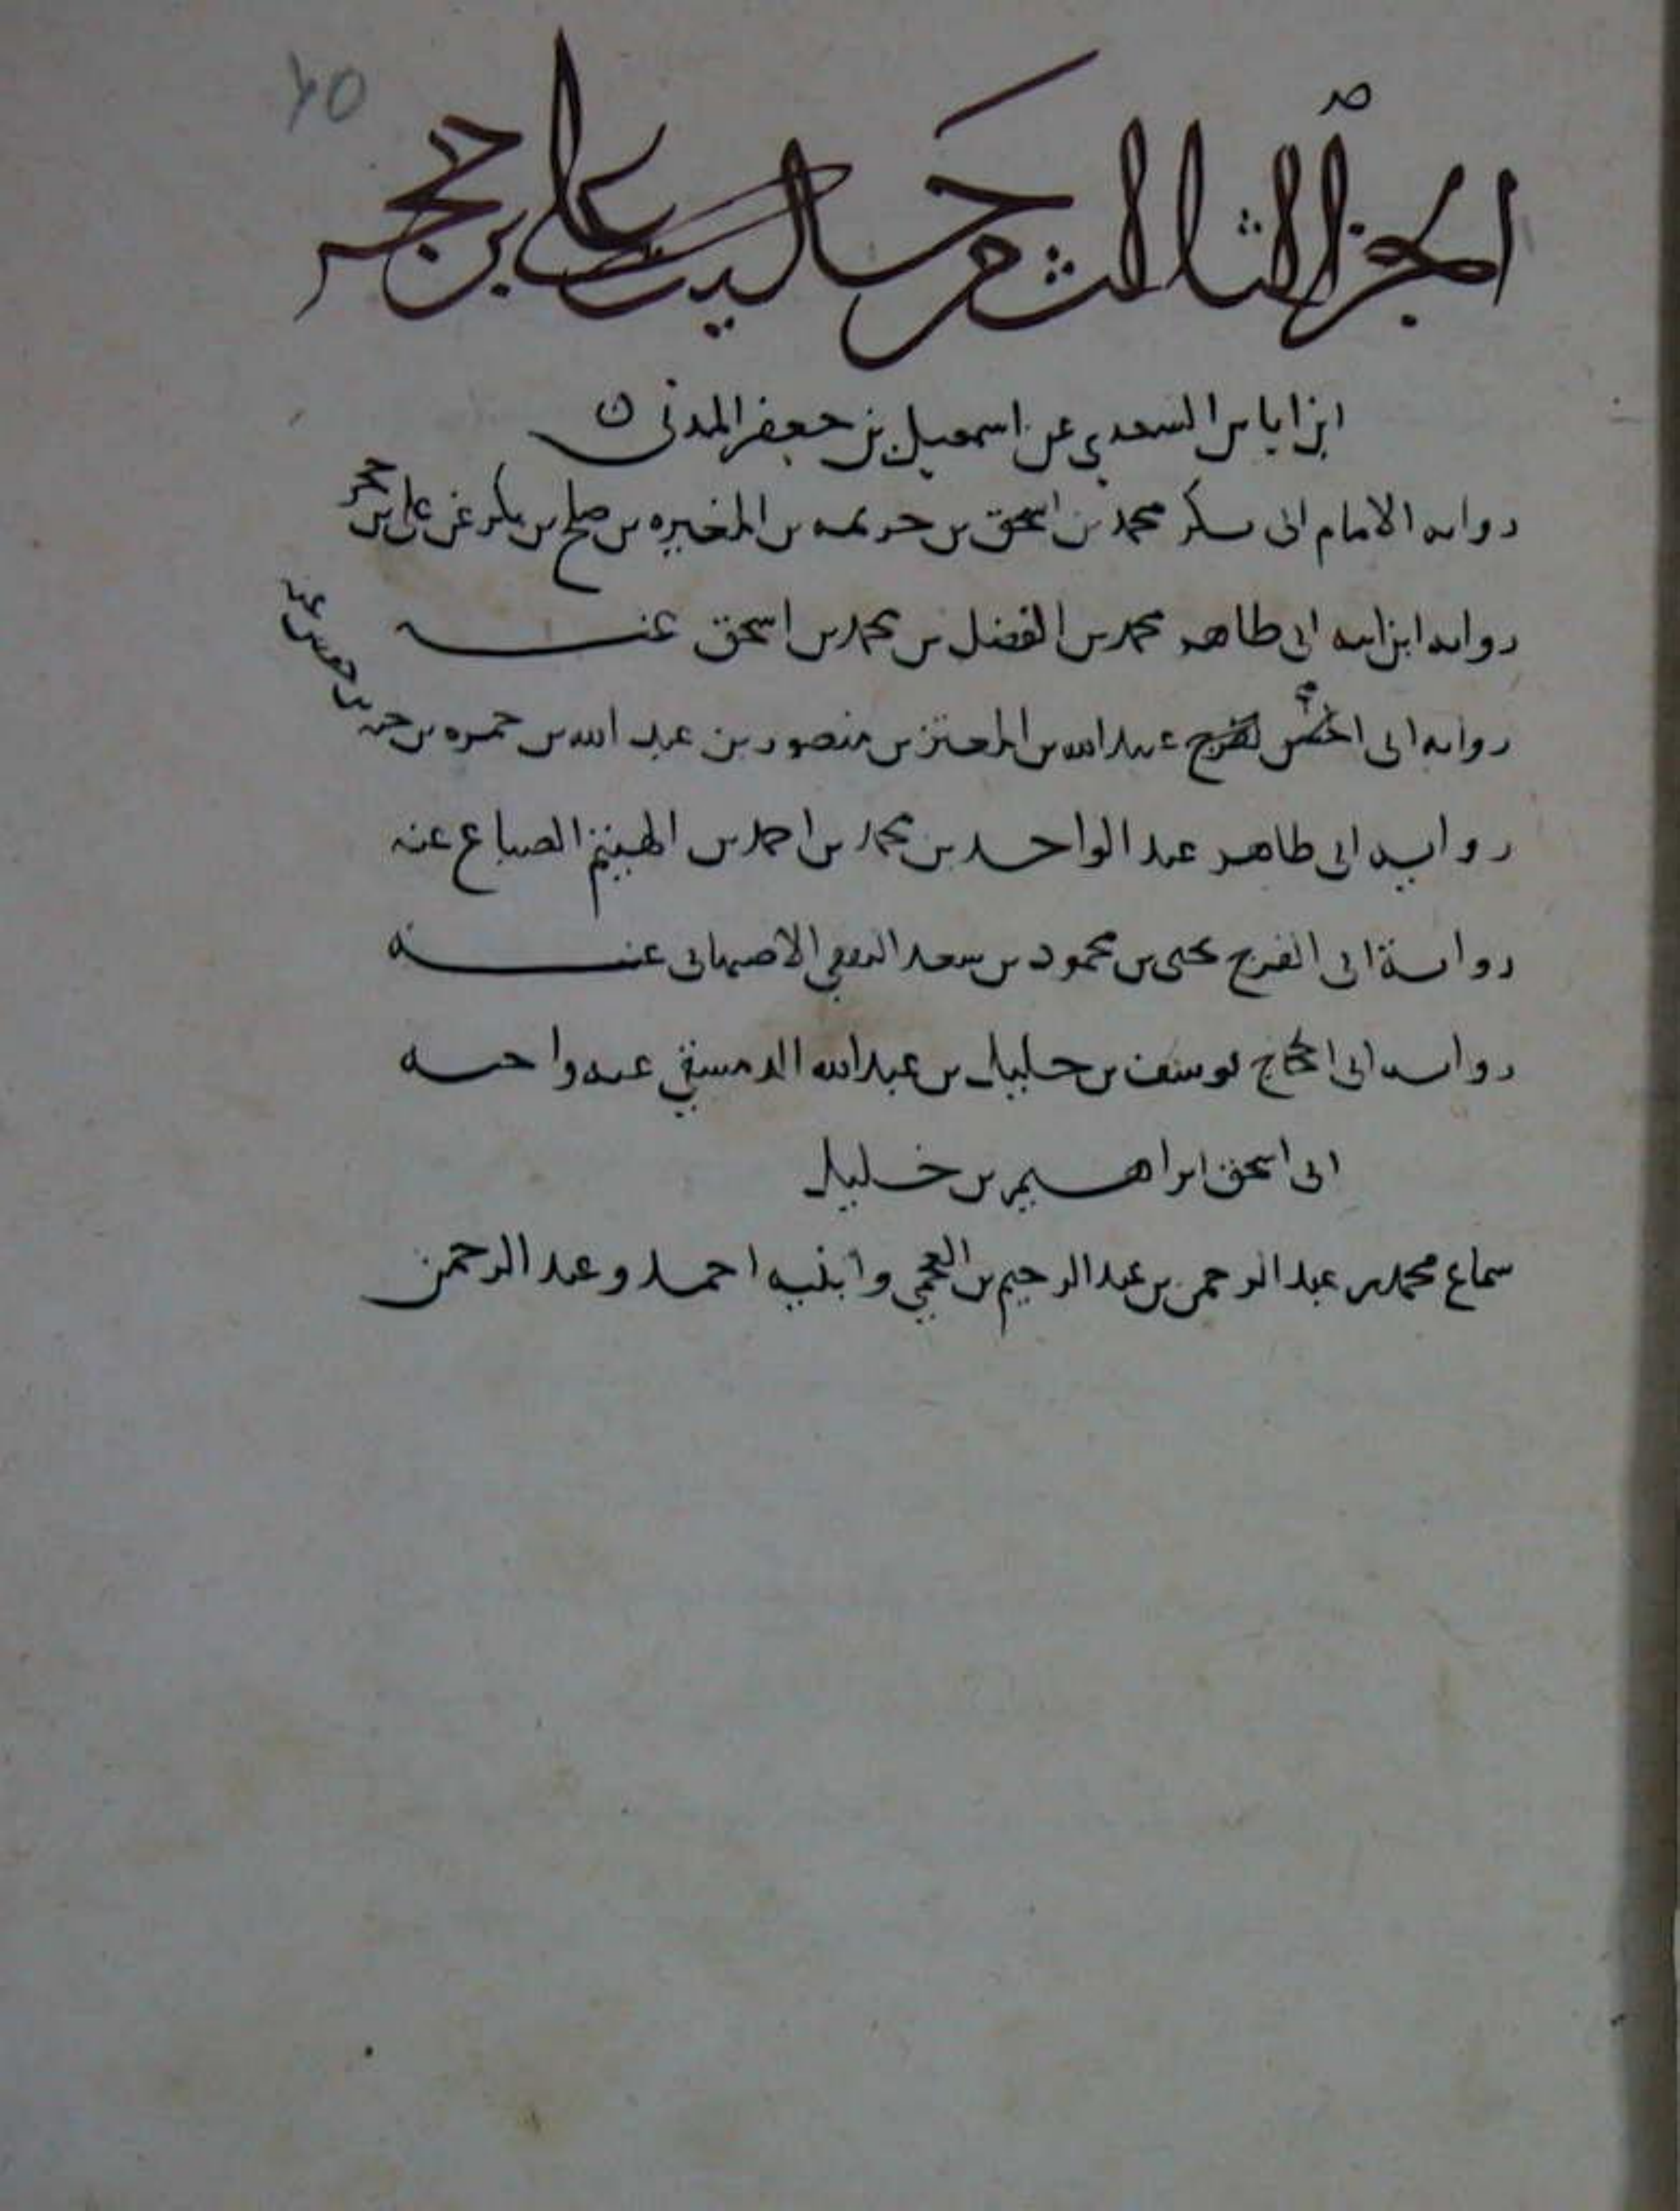 ٦٥
الجزء الثالث من حديث علي بن حجر
ابن اياس السعدي عن اسمعيل بن جعفر المدني
رواية الامام ابي بكر محمد بن اسحق بن خزيمة بن المغيره بن صلح بن بكر عن علي بن حجر
رواية ابن ابنه ابي طاهر محمد بن الفضل بن محمد بن اسحق عنه
رواية ابي الحسن عبيد الله بن المعتز بن منصور بن عبد الله بن حمزه بن عنه
رواية ابي طاهر عبد الواحد بن محمد بن احمد بن الهيثم الصباغ عنه
رواية ابي الفرج يحيى بن محمود بن سعد الثقفي الاصبهاني عنه
رواية ابي الحجاج يوسف بن خليل بن عبد الله الدمشقي عنه واخيه
ابي اسحق ابراهيم بن خليل
سماع محمد بن عبد الرحمن بن عبد الرحيم بن العجمي وابنيه احمد وعبد الرحمن